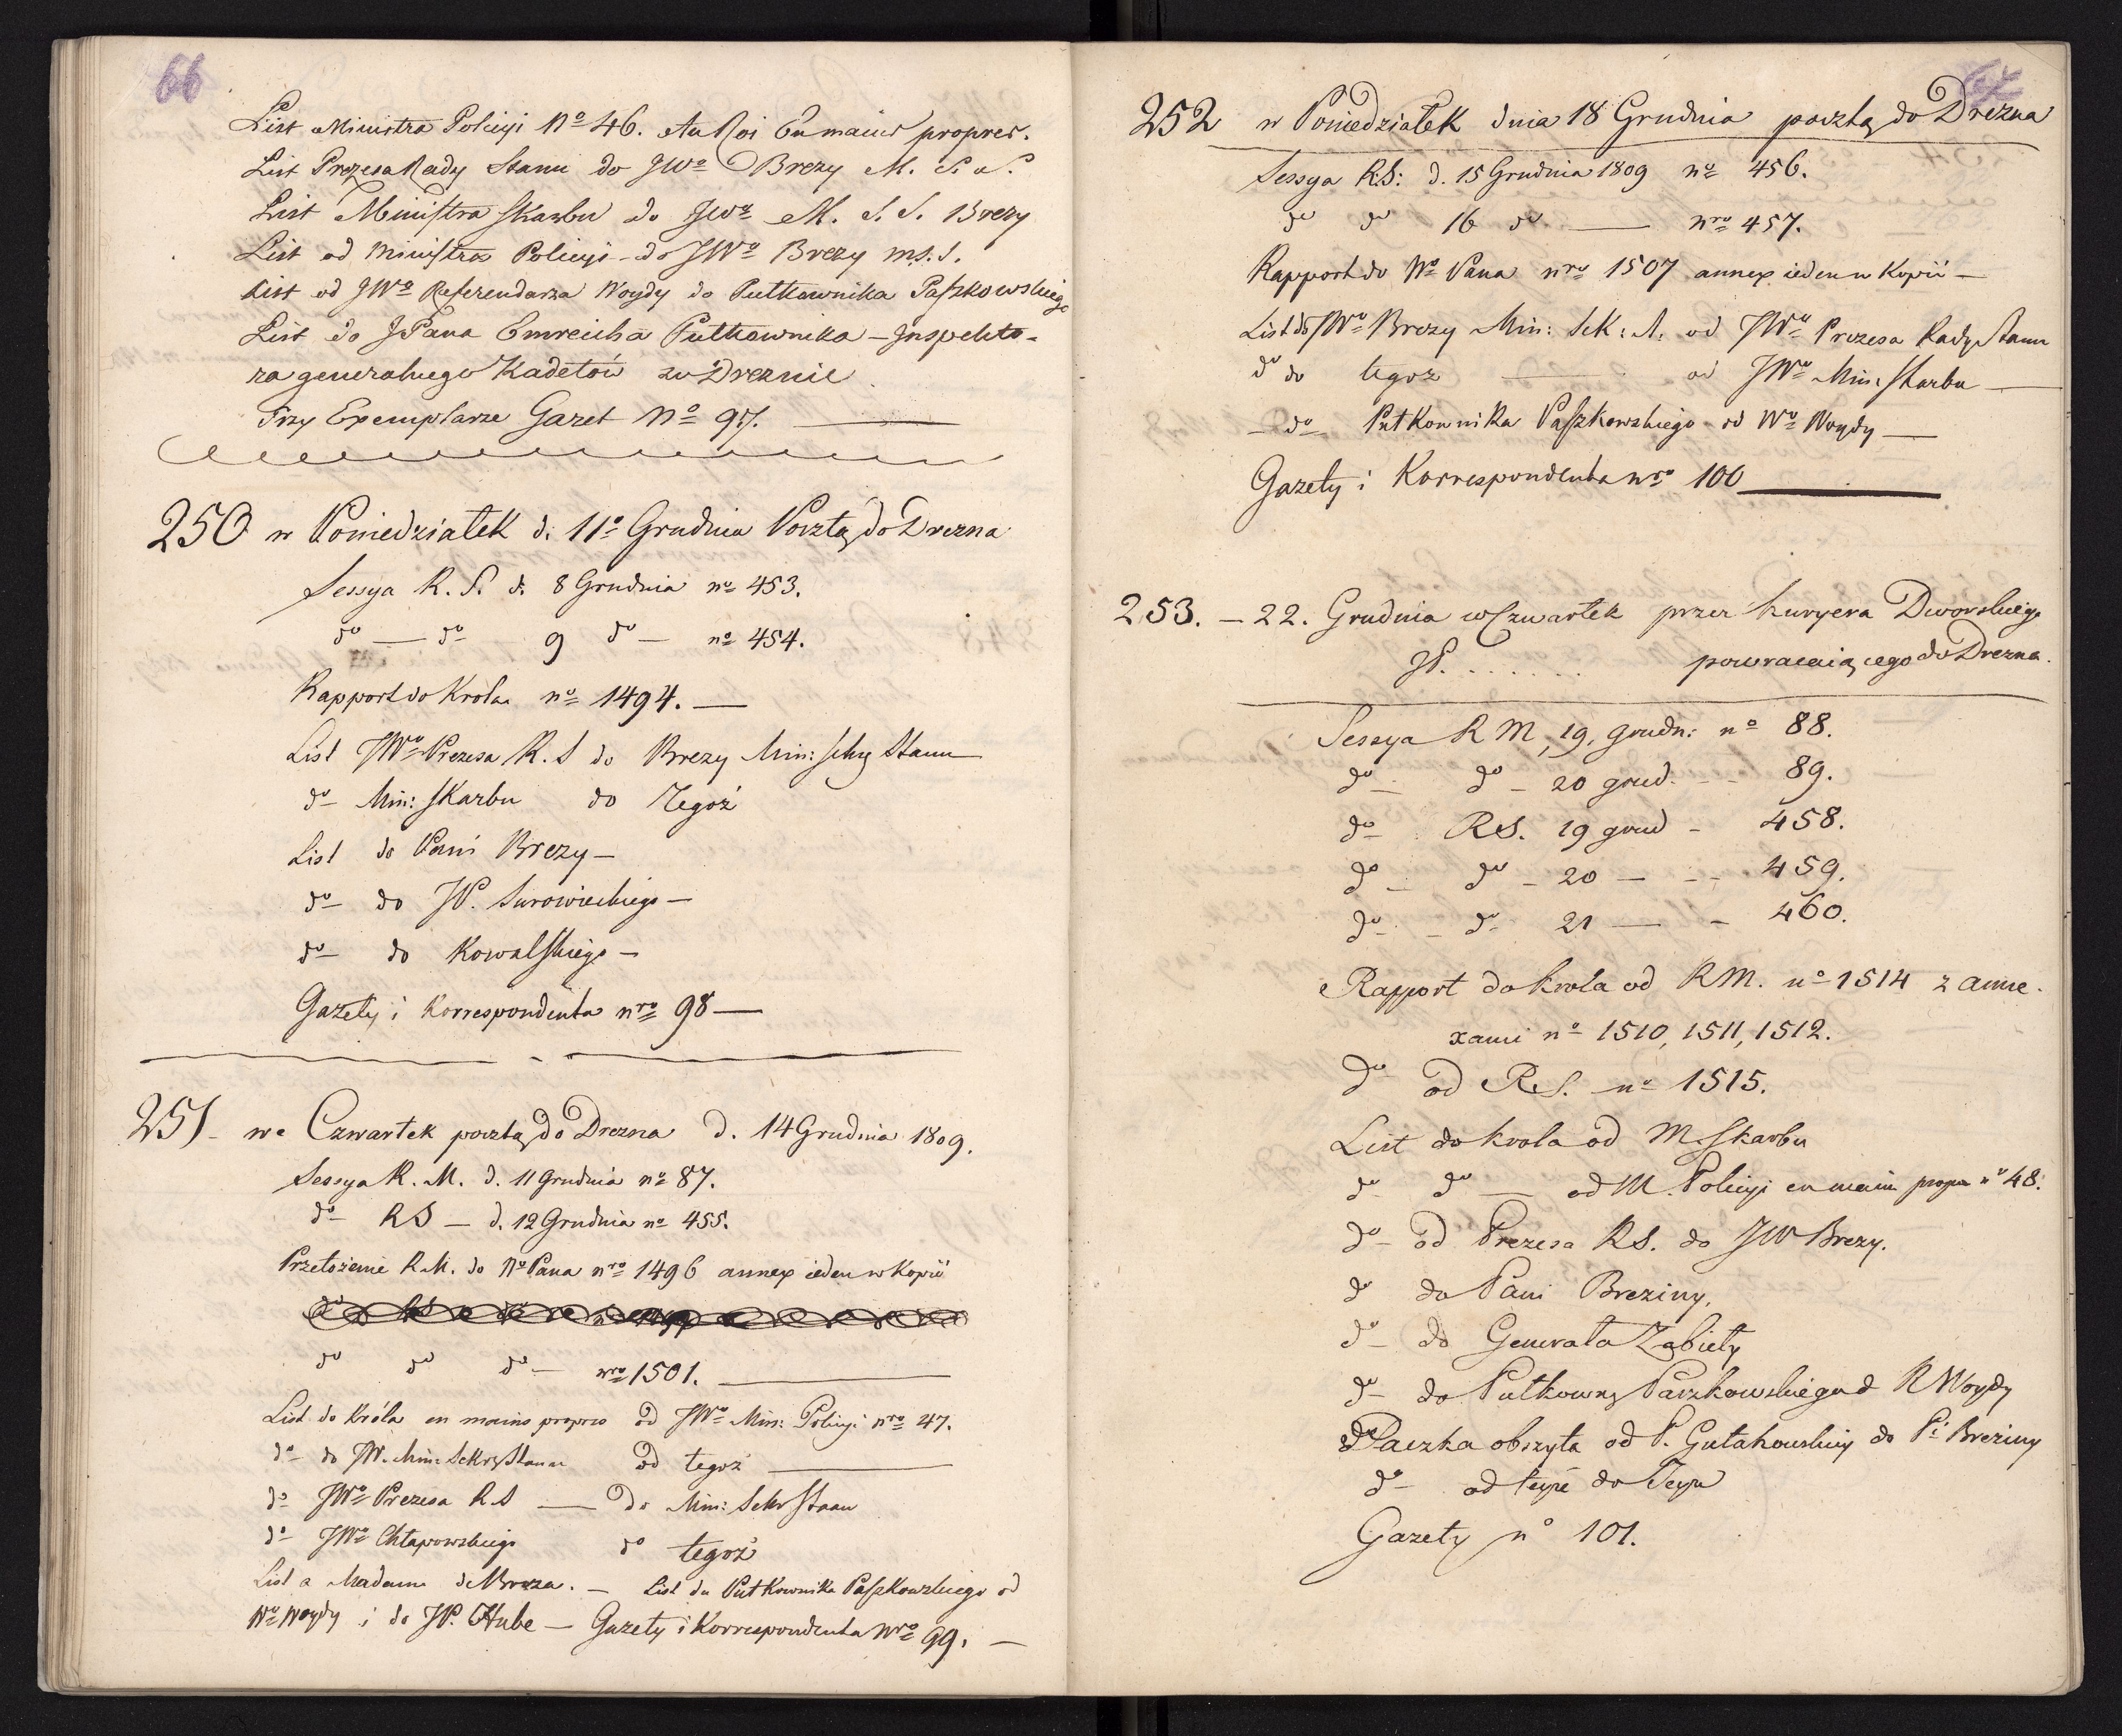 66
List Ministra Policyi No 46. Au Roi En mains propres.
List Prezesa Rady Stanu do JWo Brezy M. S. S.
List Ministra Skarbu do JWo M. S. S. Brezy
List od Ministra Policyi do JWo Brezy M.S.S.
List od JWo Referendarza Woydy do Pułkownika Paszkowskiego
List do JPana Emreicha Pułkownika – Inspekto-
ra generalnego Kadetów w Dreznie
Trzy Exemplarze Gazet No 97.
250 w Poniedziałek d. 11o Grudnia Pocztą do Drezna
Sessya R. S. d. 8 Grudnia no 453.
do — do 9 do — no 454.
Rapport do Króla no 1494. —
List JWo Prezesa R. S do Brezy Min: Sekr Stanu
do Min: Skarbu do Tegoż
List do Pani Brezy —
do do JP. Surowieckiego —
do do Kowalskiego —
Gazety i Korrespondenta nro 98 —
251 we Czwartek pocztą do Drezna d. 14 Grudnia 1809.
Sessya R. M. d. 11 Grudnia no 87.
do RS — d. 12 Grudnia no 455.
Przełożenie R.M. do No Pana nro 1496 annex ieden w Kopii
do do do — nro 1501.
List do Króla en mains propres od JWo Min: Policyi nro 47.
do do JW. Min: Sekr Stanu od tegoż
do JWo Prezesa R.S — do Min: Sekr Stanu
do JWo Chłapowskiego do tegoż
List a Madame de Breza. — List do Pułkownika Paszkowskiego od
Wo Woydy i do JP. Hube — Gazety i Korrespondenta Nro 99. —
67
252 w Poniedziałek dnia 18 Grudnia pocztą do Drezna
Sessya R.S: d. 15 Grudnia 1809 no 456.
do do 16 do — nro 457.
Rapport do No Pana nro 1507 annex ieden w Kopii —
List do JWo Brezy Min: Sek: S. od JWo Prezesa Rady Stanu
do do tegoż — od JWo Min: Skarbu —
do Pułkownika Paszkowskiego od Wo Woydy —
Gazety i Korrespondenta nro 100
253. — 22. Grudnia w Czwartek przez kuryera Dworskiego
JP. . . . . . . powracaiącego do Drezna.
Sessya R M, 19, grudn: no 88.
do do — 20 grud. — 89.
do RS. 19 grud — 458.
do — do — 20 — — 459.
do — do 21 — — 460.
Rapport do krola od RM. no 1514 z anne-
xami no 1510, 1511, 1512.
do od RS. no 1515.
List do krola od M. Skarbu
do do — od M. Policyi en main propre no 48.
do — od Prezesa RS. do JW Brezy.
do do Pani Breziny.
do do Generała Zabiełły
do do Pułkowny Paszkowskiego od R Woydy
Paczka obszyta od P. Gutakowskiey do Pi Breziny
do od teyże do Teyże
Gazety no 101.